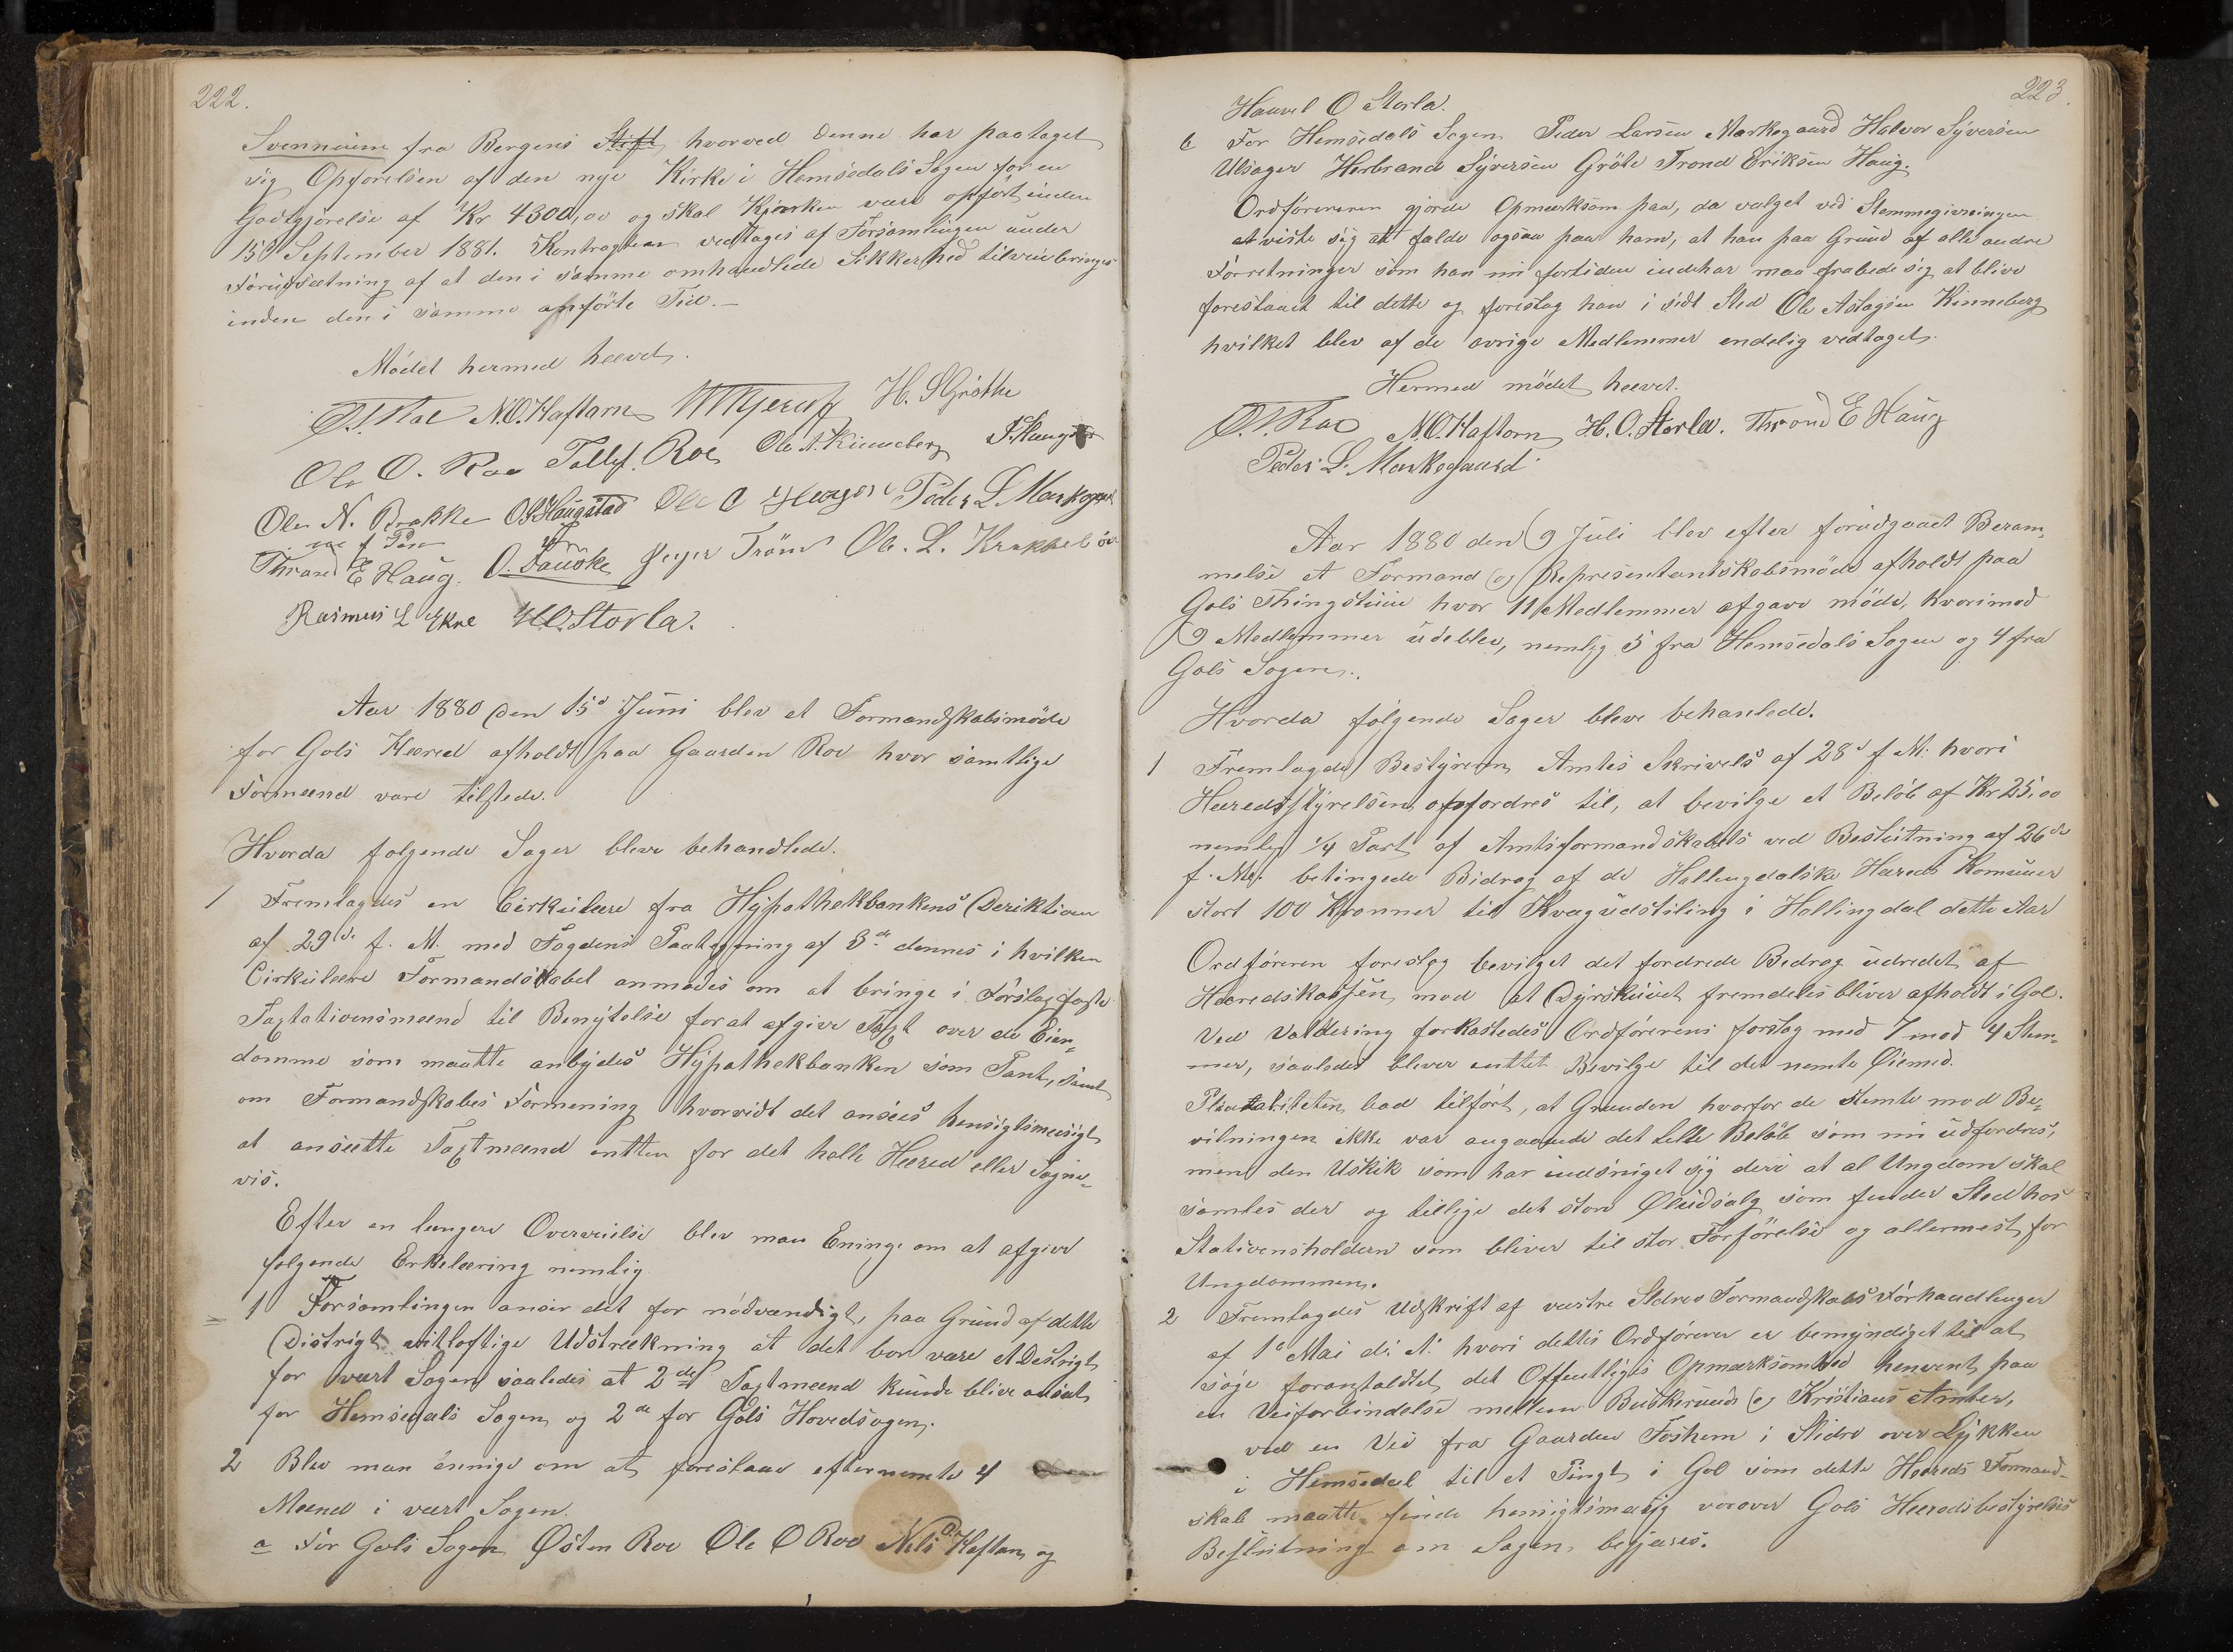 222.
Svenneim fra Bergens Stift hvorved denne har paataget
sig Opförelsen af den nye Kirke i Hemsedals Sogen for en
Godtgjörelse af Kr 4300,00 og skal Kjærken være opfört inden
15d September 1881. Kontragten vedtages af Forsamlingen under
Forudsætning af at den i samme omhandlede Sikkerhed tilveiebringes
inden den i samme anförte Tid.—
Mödet hermed hævet.
O. T. Roe N.O. Haftorn H. S Gröthe
Ole O. Roe Tollef. Roe Ole A. Kinneberg
Ole N. Brakke O. Haugstad Ole O Peder L Markegaard
Thrond E Haug. O. Dauske Tröim Ole. L.
Rasmus L Ekre H.O. Storla.
Aar 1880 den 15d Juni blev et Formandskabsmöde
for Gols Hæred afholdt paa Gaarden Roe hvor samtlige
Formænd vare tilstede.
Hvorda folgende Sager bleve behandlede.
1 Fremlagdes en Cirkulære fra Hypothekbankens Deriktion
af 29de f. M. med Fogdens Paategning af 8de dennes i hvilken
Cirkulære Formandskabet anmodes om at bringe i Forslag faste
Taxtationsmænd til Benyttelse for at afgive Taxt over de Eien-
domme som maatte anbydes Hypothekbanken som Pant, samt
om Formandskabes Formening hvorvidt det ansees hensigtsmæsigt
at ansætte Taxtmænd entten for det helle Hæred eller Sogne-
vis.
Efter en længere Overveielse blev man Eninge om at afgive
folgende Erkelæring nemlig
1 Forsamlingen anser det for nödvændigt, paa Grund af dette
Distrigt vitloftige Udstrækning at det bor være et Destrigt
for vært Sogen saaledes at 2de Taxtmænd kunde blive ansat
for Hemsedals Sogen og 2de for Gols Hovedsogen.
2 Blev man ennige om at foreslaae efternemte 4
Mænd i vært Sogen.
a For Gols Sogen Østen Roe Ole O Roe Nels O. Haftorn og
223.
Haavel O Storla.
b For Hemsedals Sogen Peder Larsen Markegaard Halvor Syversen
Ulsager Herbrand Syversen Gröte Trond Eriksen Haug.
Ordföreren gjorde Opmærksom paa, da valget ved Stemmegivningen
at viste sig at falde ogsaa paa ham, at han paa Grund af alle andre
Forretninger som han nu fortiden indehar maa frabede sig at blive
forestaaet til dette og foreslog han i sidt Sted Ole Aslagsen Kinneberg
hvilket blev af de ovrige Medlemmer endelig vedtaget.
Hermed mödet hævet.
O. T. Roe N.O. Haftorn H.O. Storla. Thrond E Haug
Peder L. Markegaard.
Aar 1880 den 9 Juli blev efter forudgaaet Beram-
melse et Formand og Representantskabsmöde afholdt paa
Gols Thingstue hvor 11 Medlemmer afgave möde, hvorimod
9 Medlemmer udeblev, nemlig 5 fra Hemsedals Sogen og 4 fra
Gols Sogen.
Hvorda fölgende Sager bleve behanlede.
1 Fremlagdes Bestyreren Amtes Skrivels af 28d f M. hvori
Hæredsstyrelsen opfordres til, at bevilge et Belöb af Kr 25,00
nemlig 1/4 Part af Amtsformandskabets ved Beslutning af 26de
f. M. betingede Bidrag af de Hallingdalske Hæreds Komuner
stort 100 Kronner til Kvægudstiling i Hallingdal dette Aar
Ordföreren foreslog bevilget det fordrede Bedrag udredet af
Hæredskassen mod at Dyrskuuet fremdeles bliver afholdt i Gol.
Ved Voldering forkastedes Ordförerens forslag med 7 mod 4 Stem-
mer, saaledes bliver inttet Bevilge til det nemte Öiemed.
Pluraliteten bad tilfört, at Grunden hvorfor de stemte mod Be-
vilningen ikke var angaaende det lille Belöb som nu udfordres,
men den Uskik som har indsniget sig deri at al Ungdom skal
samles der og tillige det store Øludsalg som finder Sted hos
Stationsholdern som bliver til stor Forförelse og allermest for
Ungdommen.
2 Fremlagdes Udskrift af vestre Slidres Formandskabs Forhandlinger
af 1e Mai d. A. hvori dettes Ordförerer er bemyndiget til at
söge foranstaldtet det Offentliges Opmærksomhed henvent paa
en Veiforbindelse mellem Buskeruds og Kristians Amter,
ved en Vei fra Gaarden Fosheim i Slidre over Lykken
i Hemsedal til et Pungt i Gol som dette Hæreds Formand-
skab maatte finde hensigtsmæsig vorover Gols Hæredsbestyrelses
Beslutning om Sagen begjæres.